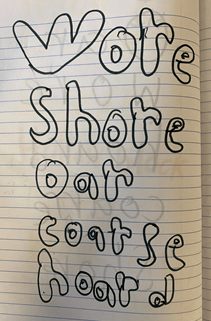 Wore
Shore
Oar
coarse
hoard